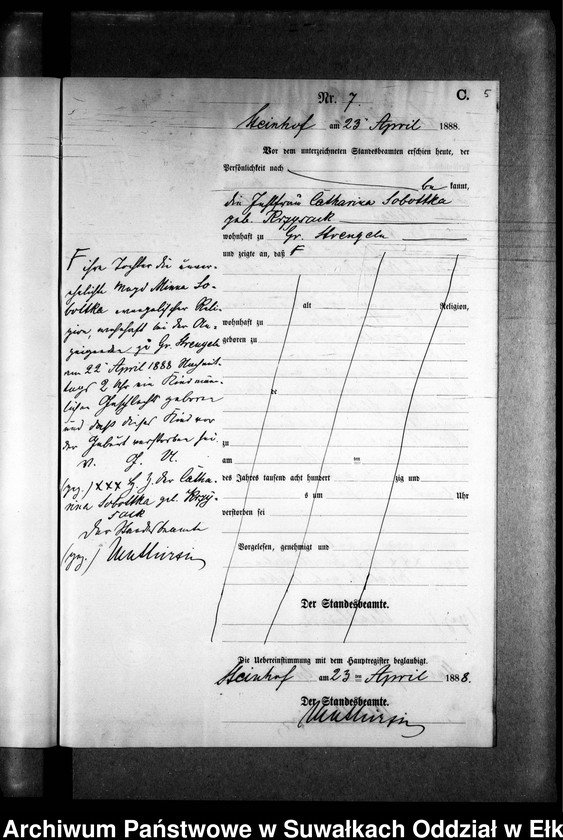 Nr. 7.
C. 5
Steinhof am 23 April 1888.
Vor dem unterzeichneten Standesbeamten erschien heute, der
Persönlichkeit nach
be kannt,
die Instfrau Catharina Sobottka
geb. Krzysack
wohnhaft zu Gr. Strengeln
und zeigte an, daß F
F ihre Tochter die unver-
ehelichte Magd Minna So-
bottka evangelischer Reli-
gion, wohnhaft bei der An-
zeigende zu Gr. Strengeln
am 22 April 1888 Nachmit-
tags 2 Uhr ein Kind männ-
lichen Geschlechts geboren
und daß dieses Kind vor
der Geburt verstorben sei.
V. G. U.
(gez.) XXX H. Z. der Catha-
rina Sobottka geb. Krzy-
sack
Der Standesbeamte
(gez.)
alt Religion,
wohnhaft zu
geboren zu
de
zu
am ten
des Jahres tausend acht hundert zig und
s um Uhr
verstorben sei
Vorgelesen, genehmigt und
Der Standesbeamte.
Die Uebereinstimmung mit dem Hauptregister beglaubigt.
Steinhof am 23 ten April 1888.
Der Standesbeamte.
Archiwum Państwowe w Suwałkach Oddział w Ełk